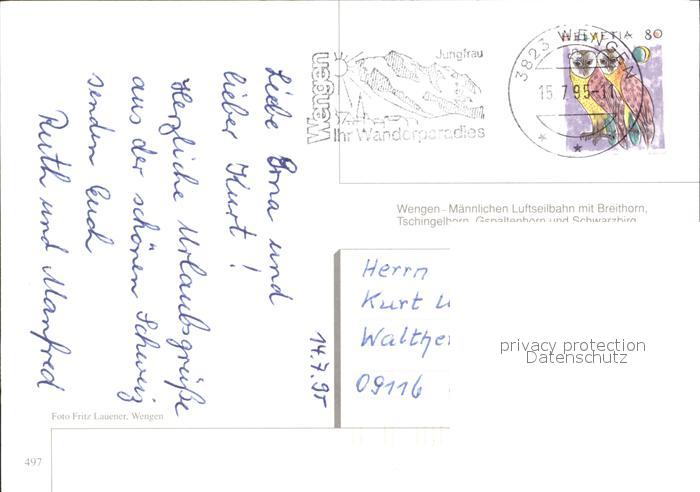 Liebe Erna und
lieber Kurt!
Herzliche Urlaubsgrüße
aus der schönen Schweiz
senden Euch
Ruth und Manfred
14.7.95
Wengen
Jungfrau
Ihr Wanderparadies
HELVETIA 80
3823 WENGEN
15.7.95-11
Wengen - Männlichen Luftseilbahn mit Breithorn,
Tschingelhorn, Gspaltenhorn und Schwarzbirg
Herrn
Kurt
Walther
09116
privacy protection
Datenschutz
Foto Fritz Lauener, Wengen
497